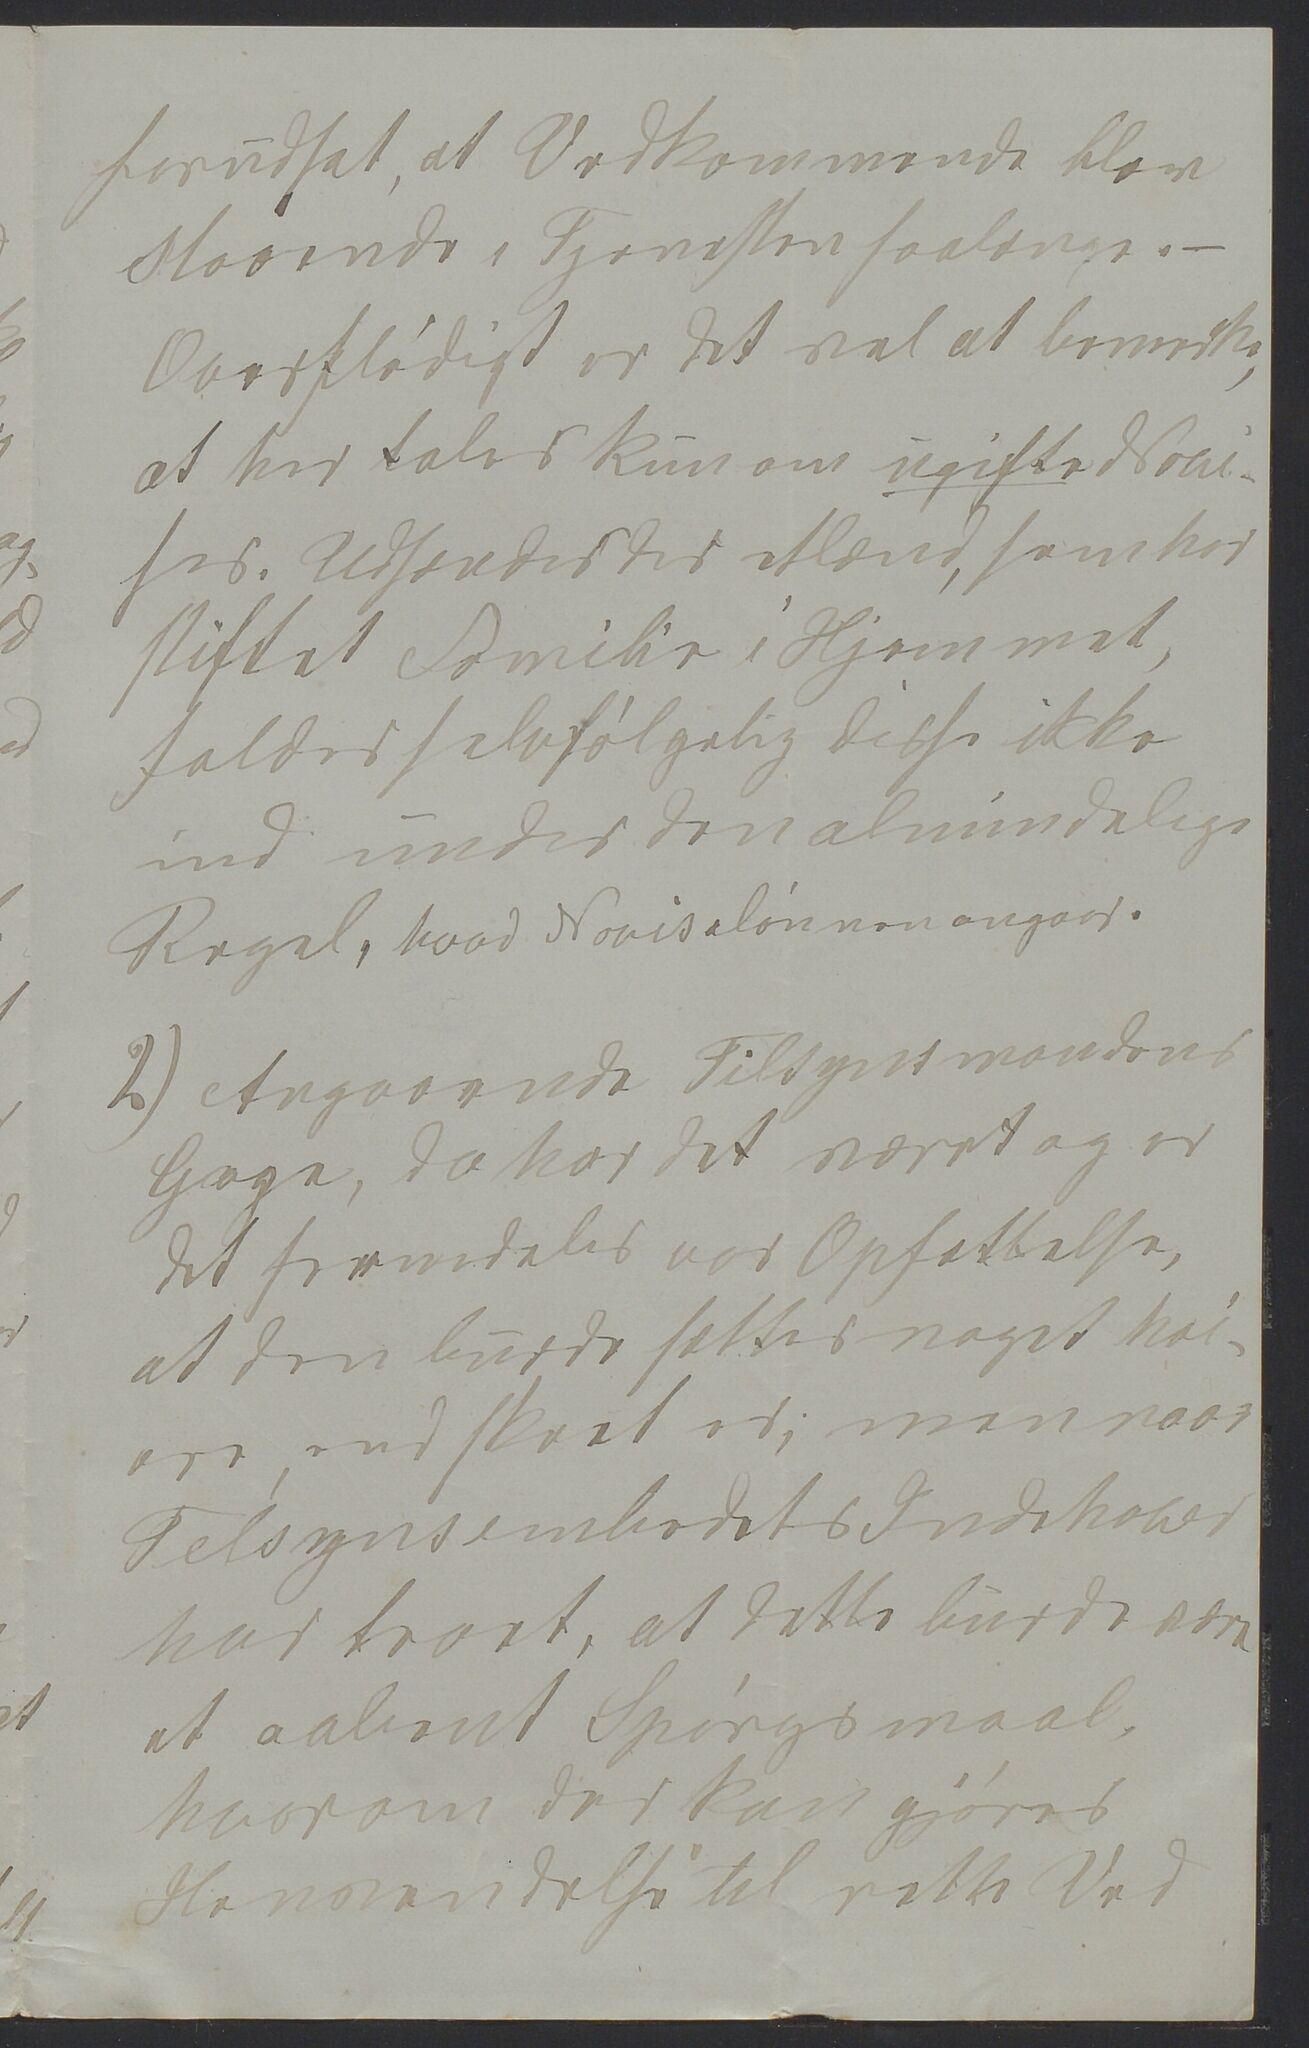 forudsat, at Vedkommende blev
staaende i Tjenesten saalænge. —
Overflødigt er det vel at bemærke,
at her tales kun om ugifte Novi-
ser. Udsendes der Mænd, som har
stiftet Familie i Hjemmet,
falder selvfølgelig disse ikke
ind under den almindelige
Regel, hvad Noviselønnen angaar.
2) Angaaende Tilsynsmandens
Gage, da har det været og er
det fremdeles vor Opfattelse,
at den burde sættes noget høi-
ere, end skeet er; men naar
Tilsynsembedets Indehaver
har troet, at dette burde være
et aabent Spørgsmaal,
hvorom der kan gjøres
Henvendelse til rette Ved